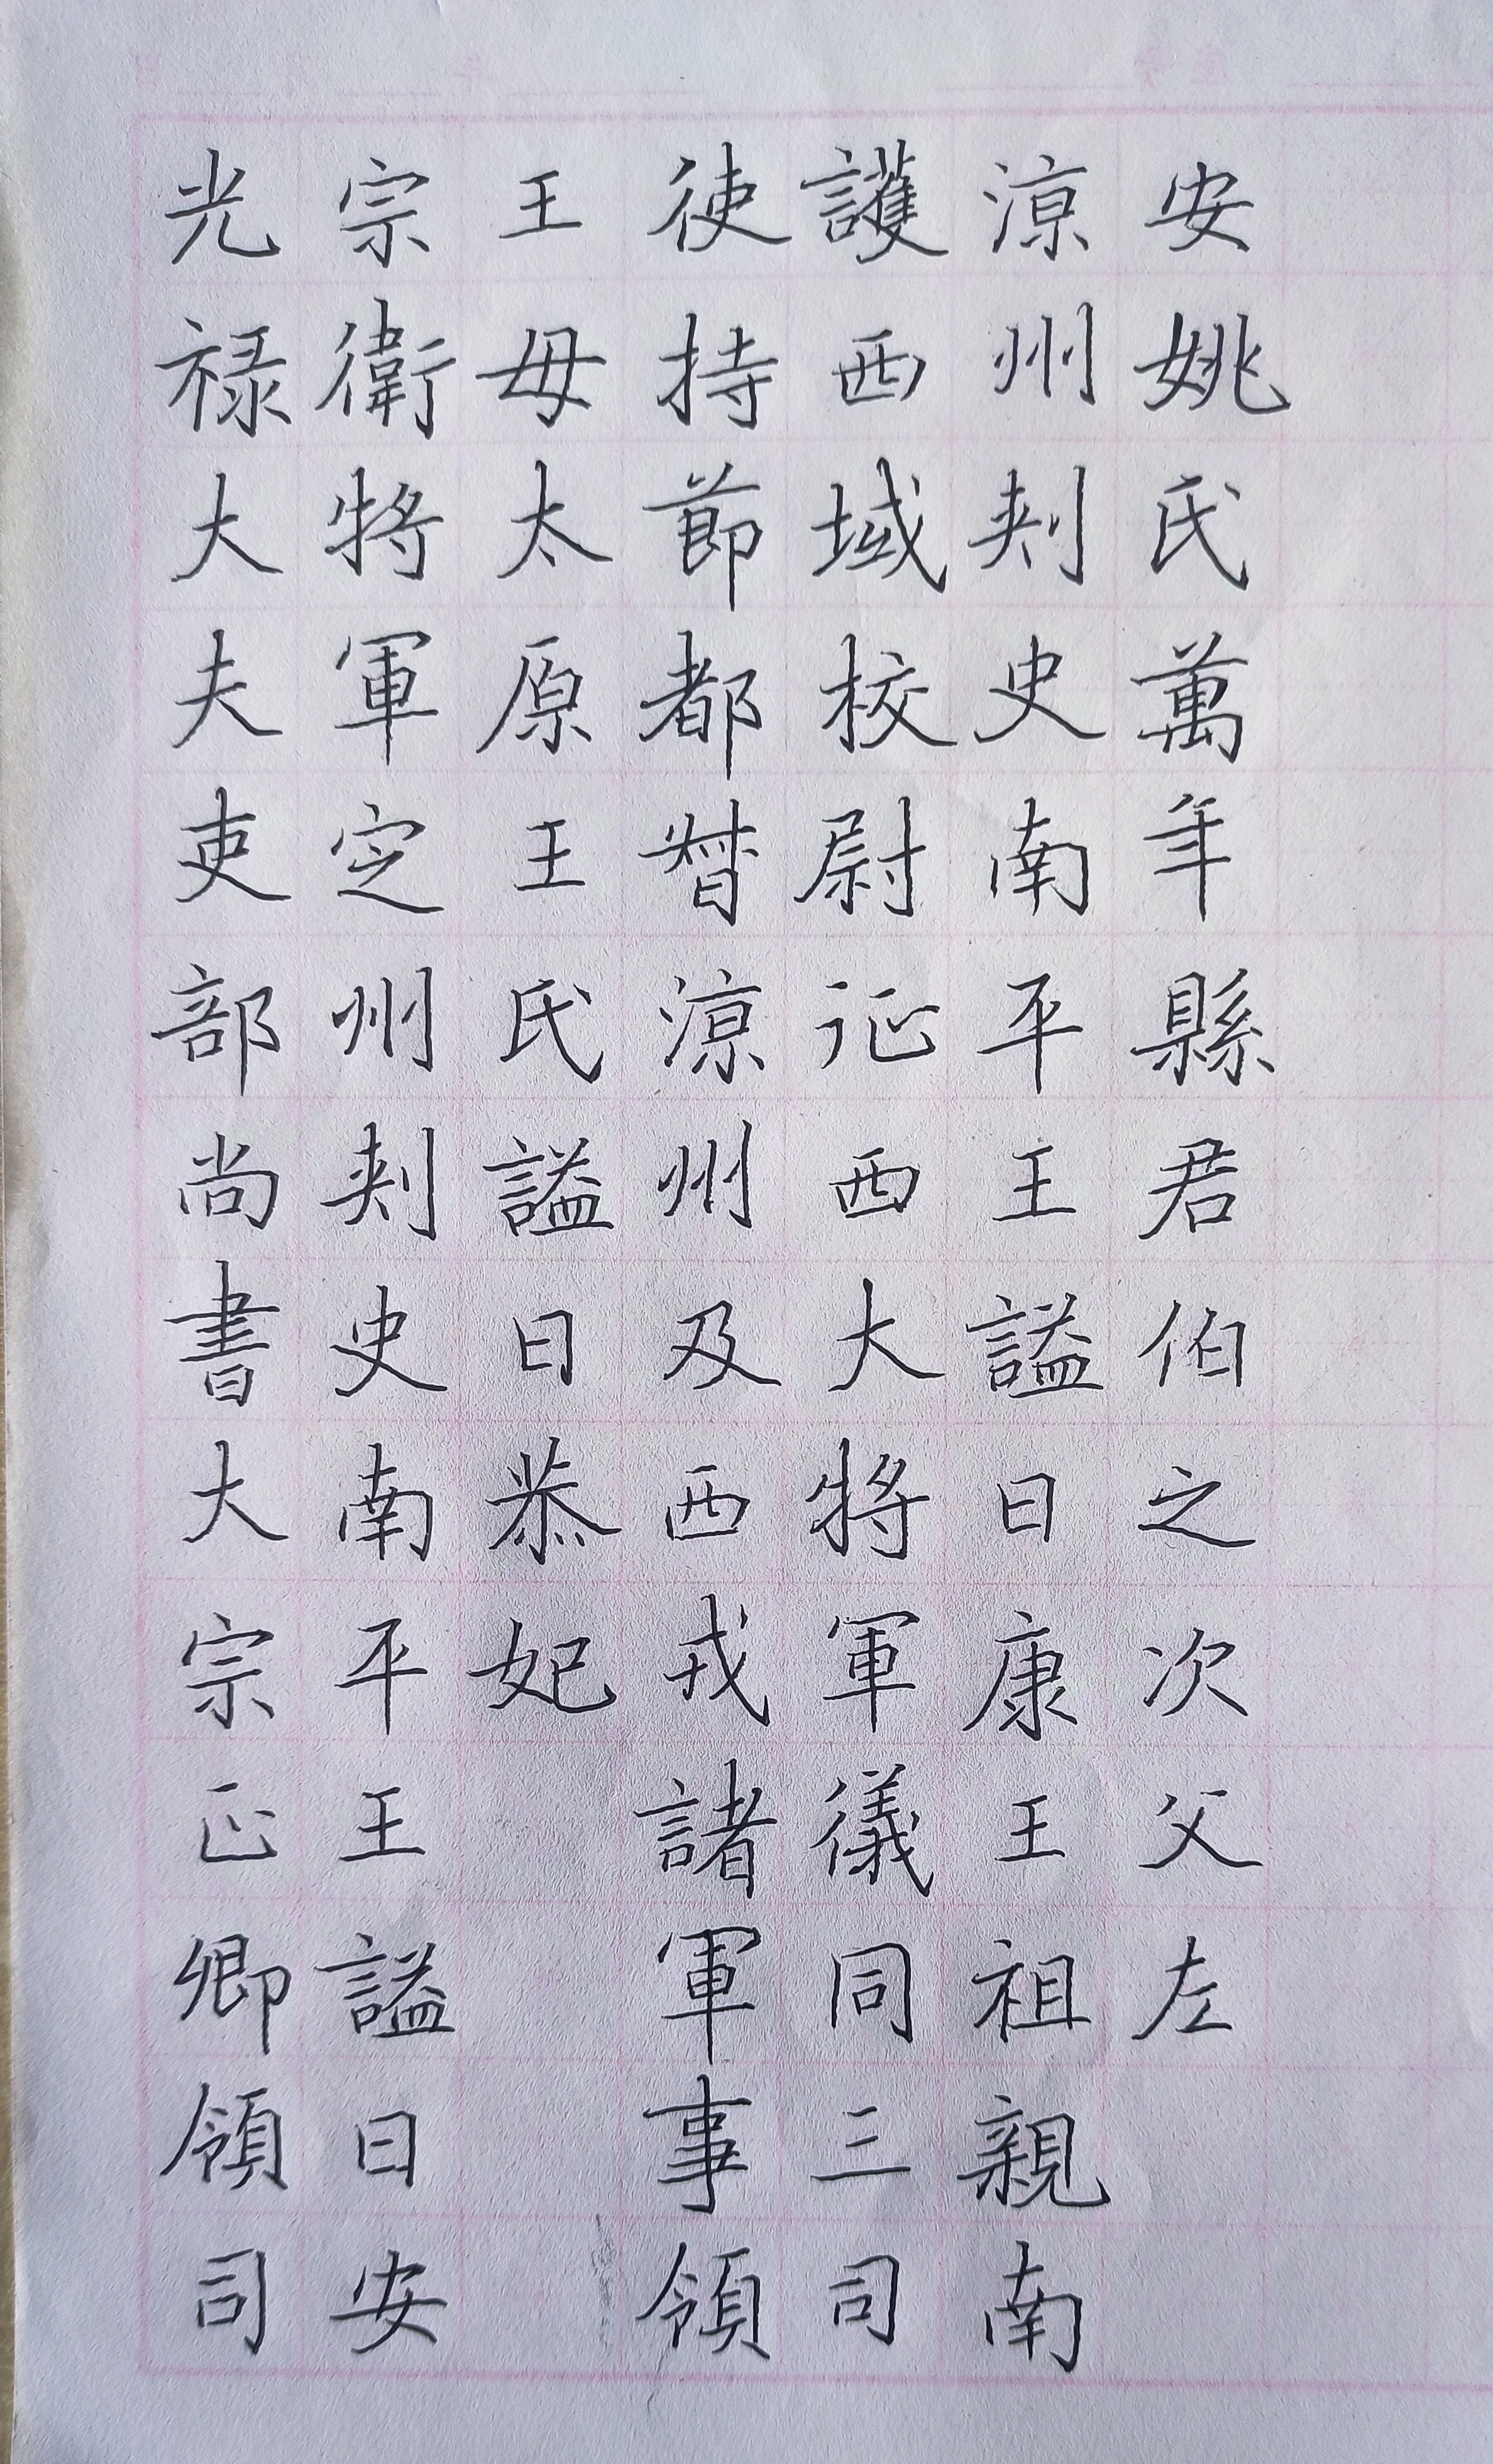 光祿大夫吏部尚書大宗正卿領司
宗衛將軍定州刺史南平王謚曰安
王母太原王氏謚曰恭妃
使持節都督涼州及西戎諸軍事領
護西域校尉征西大將軍儀同三司
涼州刺史南平王謚曰康王祖親南
安姚氏萬年縣君伯之次父左